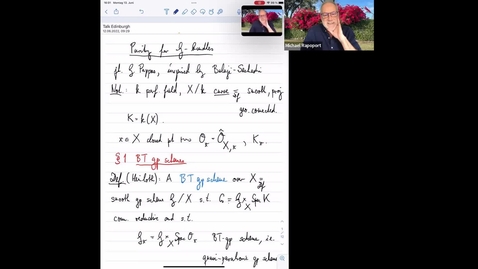 Talk Edinburgh
Purity for G-Bundles
jt. G Pappas, inspired by Balaji-Seshadri
Not: k perf. field, X/k curve = smooth, proj
geo. connected.
K = k(X)
x ∈ X closed pt ⇝ O_x = Ô_{X,x}, K_x
§1 BT gp schemes
Def (Heinloth): A BT gp scheme over X =
smooth gp scheme G/X s.t. G = G ×_X Spec K
conn reductive and s.t.
G_x = G ×_X Spec O_x BT-gp scheme, ie
quasi-parahoric gp scheme
Michael Rapoport